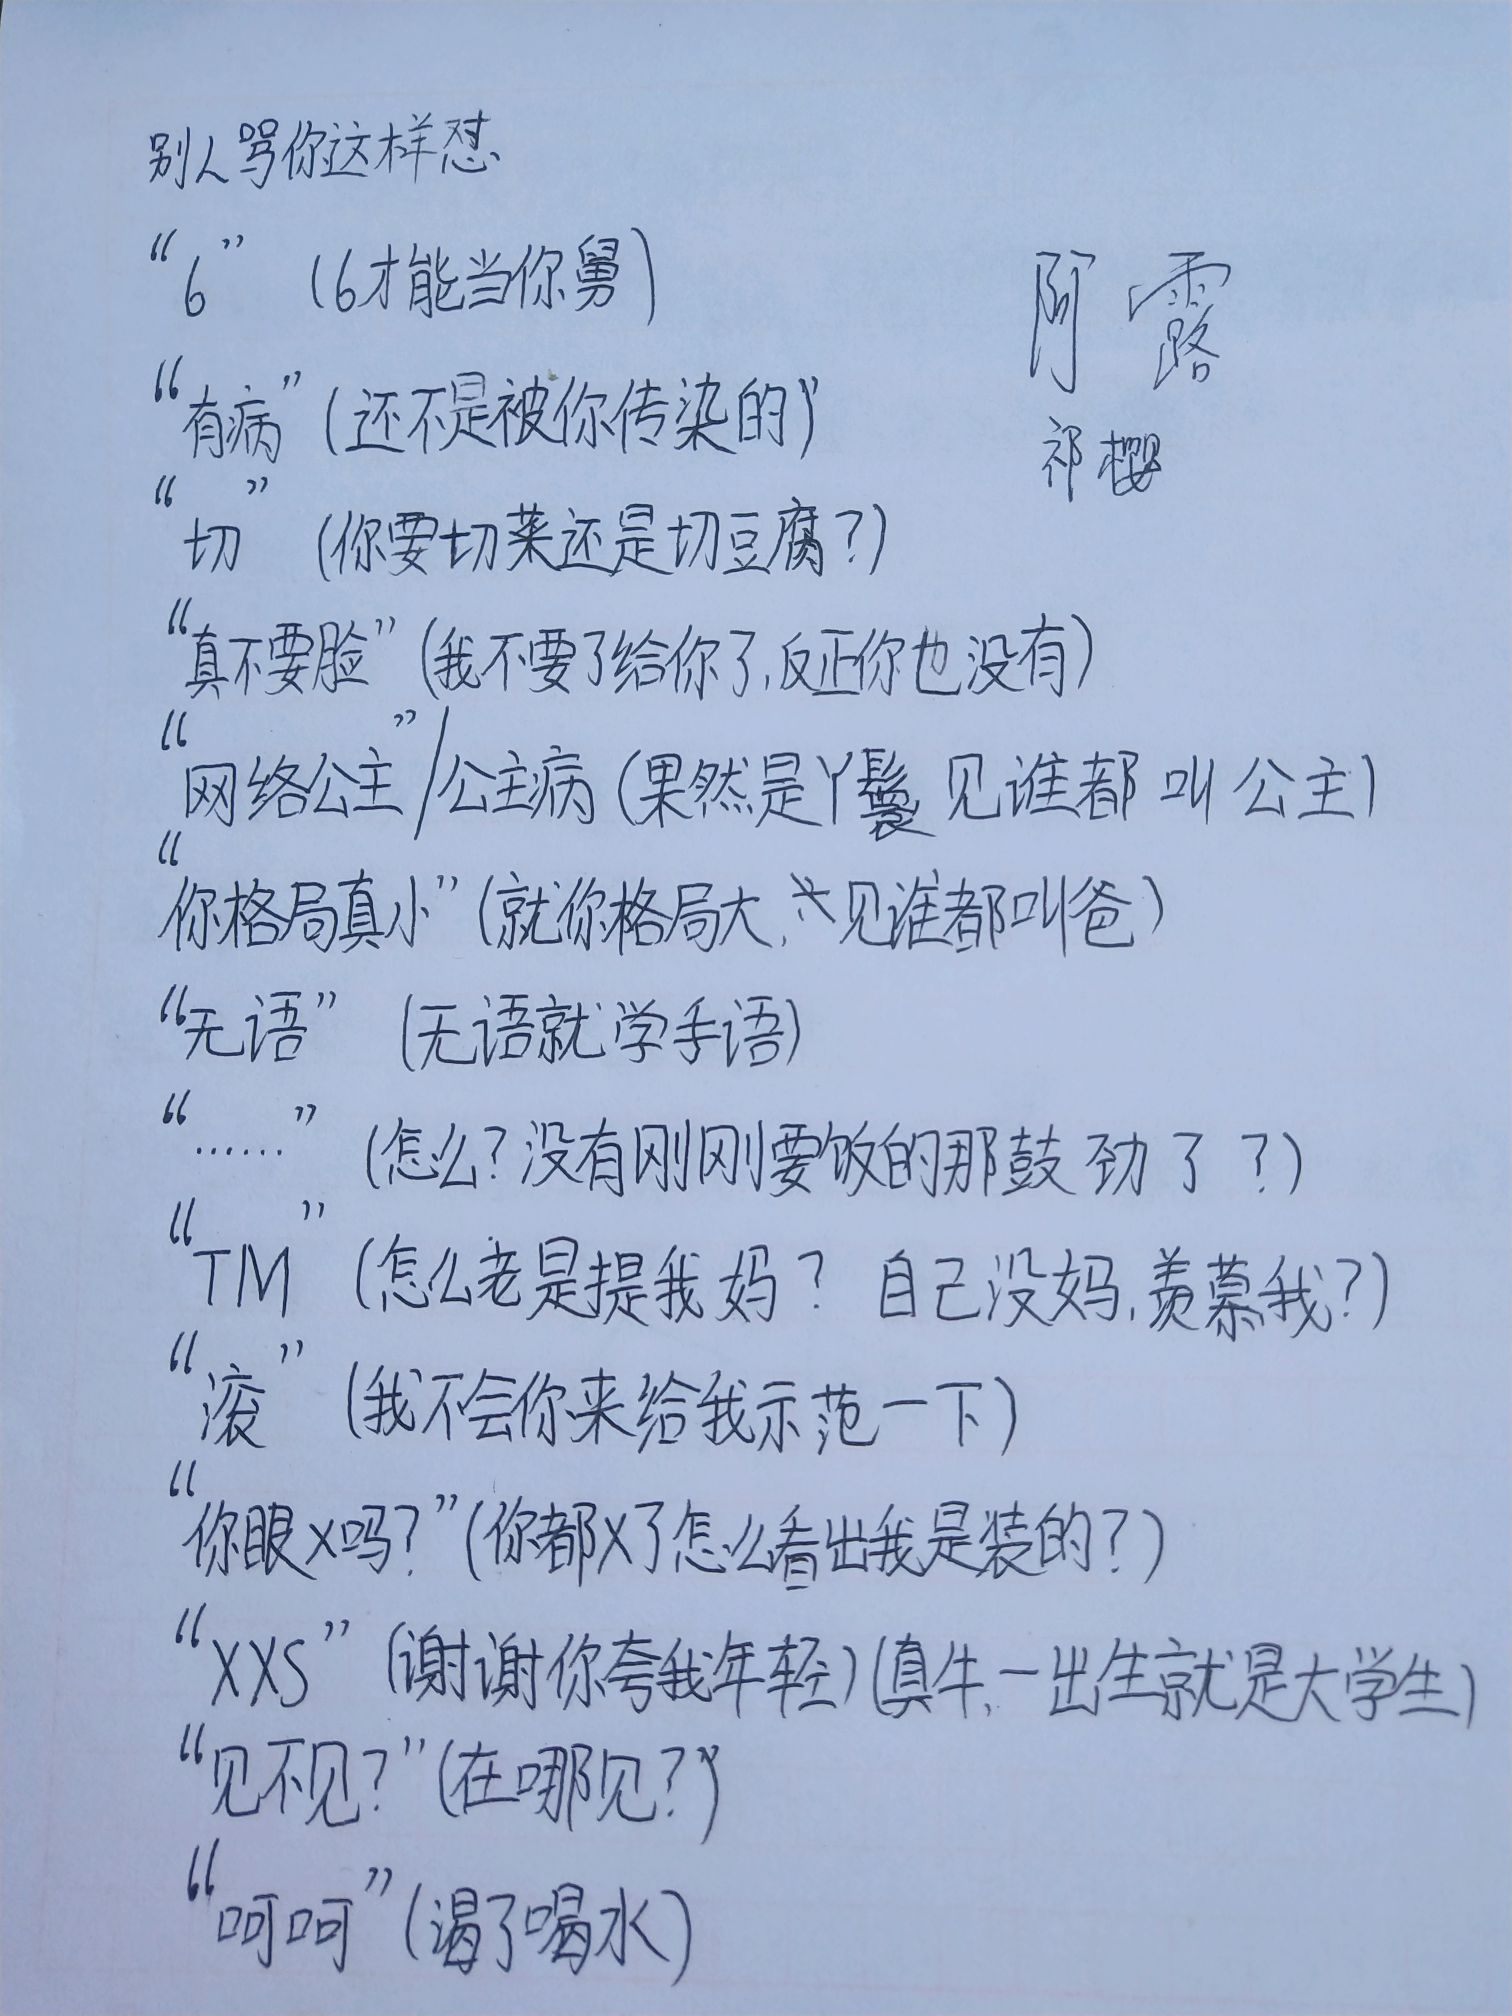 别人骂你这样怼
“6” (6才能当你舅)
阿露
“有病” (还不是被你传染的)
祁樱
“切” (你要切菜还是切豆腐?)
“真不要脸” (我不要了给你了,反正你也没有)
“网络公主”/公主病 (果然是丫鬟 见谁都叫公主)
“你格局真小” (就你格局大, 见谁都叫爸)
“无语” (无语就学手语)
“……” (怎么?没有刚刚要饭的那鼓劲了?)
“TM” (怎么老是提我妈? 自己没妈,羡慕我?)
“滚” (我不会你来给我示范一下)
“你眼X吗?” (你都X了怎么看出我是装的?)
“XXS” (谢谢你夸我年轻) (真牛,一出生就是大学生)
“见不见?” (在哪见?)
“呵呵” (渴了喝水)